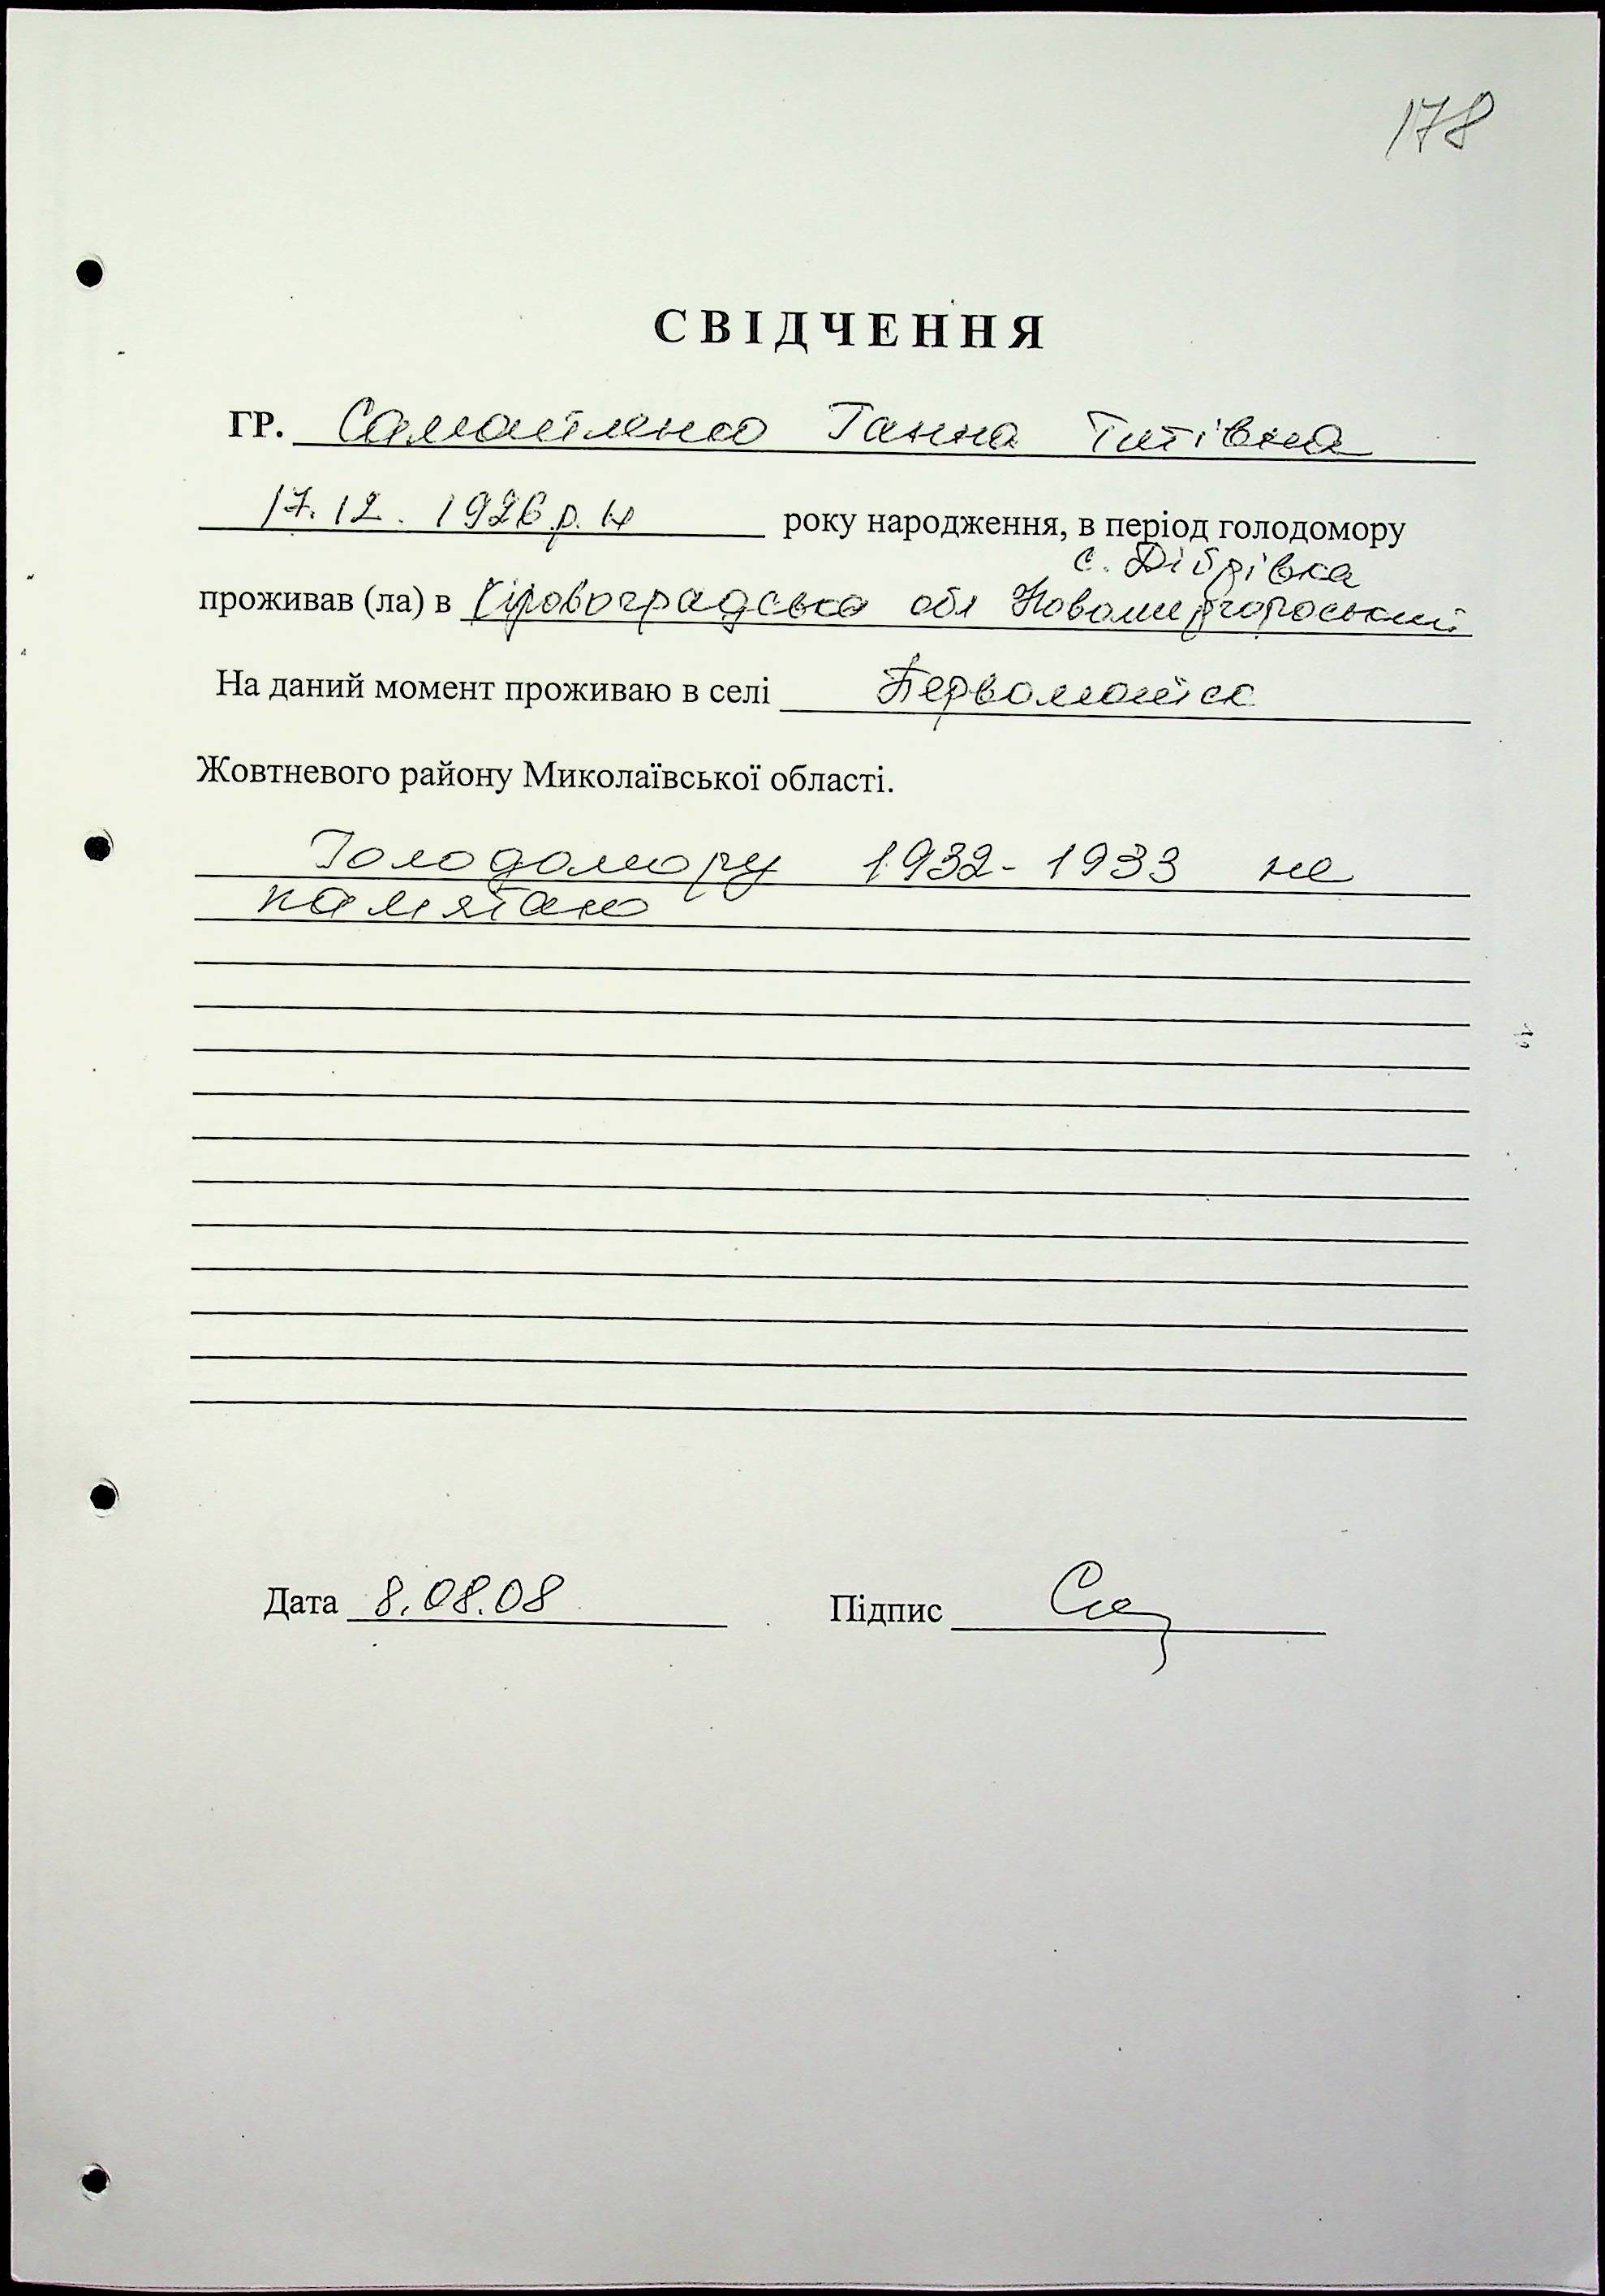 178
СВІДЧЕННЯ
ГР. Самойленко Ганна Титівна
17.12.1926 р. н року народження, в період голодомору
с. Дібрівка
проживав (ла) в Кіровоградська обл Новомиргороський
На даний момент проживаю в селі Первомайск
Жовтневого району Миколаївської області.
Голодомору 1932-1933 не
памятаю
Дата 8.08.08 Підпис